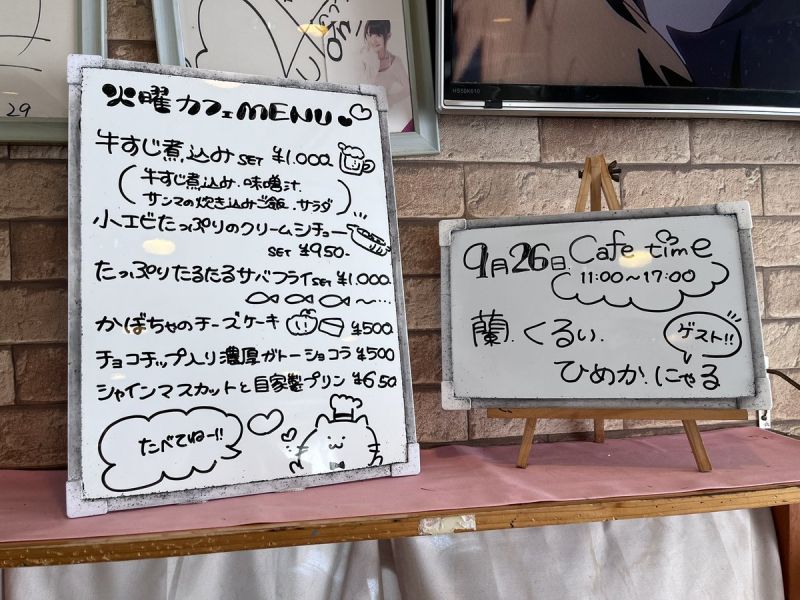 29
HS50K610
火曜カフェMENU
牛すじ煮込み SET ¥1.000
(牛すじ煮込み.味噌汁.
サンマの炊き込みご飯.サラダ)
小エビたっぷりのクリームシチュー
SET ¥950-
たっぷりたるたるサバフライ SET ¥1.000
かぼちゃのチーズケーキ ¥500
チョコチップ入り濃厚ガトーショコラ ¥500
シャインマスカットと自家製プリン ¥650
たべてねー!!
9月26日 Cafe time
11:00~17:00
蘭.くるい.
ゲスト!!
ひめか.にゃる